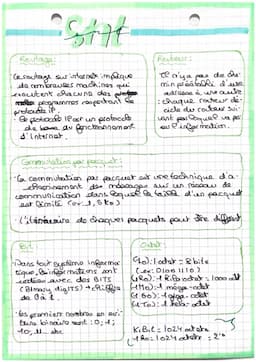 SNT
Routage :
Le routage sur internet implique
de nombreuses machines qui
exécutent chacune des
programmes respectant le
protocole IP.
Le protocole IP est un protocole
de du fonctionnement
d'Internet.
Routeurs :
Il n'y a pas de che-
min préétabli d'une
adresse à une autre
chaque routeur dé-
cide du routeur sui-
vant par lequel va pa-
sser l'information.
Commutation par paquet :
La commutation par paquet est une technique d'a-
cheminement des messages sur un réseau de
communication dans lequel la taille d'un paquet
est limité (or 1,5 ko)
L'itinéraire de chaque paquets peut être différent
Bit
Dans tout système informa-
tique, les informations sont
codées avec des BITS
(Binary digITS) → chiffres
de 0 à 1.
Les premiers nombres en écri-
ture binaire sont : 0 ; 1 ;
10, 11 etc
Octet
(1o) : 1 octet = 8 bits
(ex : 01001110)
(1Ko) : 1 Kilo octet = 1000 octets
(1Mo) : 1 méga-octet
(1Go) : 1 giga-octet
(1To) : 1 téra-octet
KiBit = 1024 octets
: 1024 octets